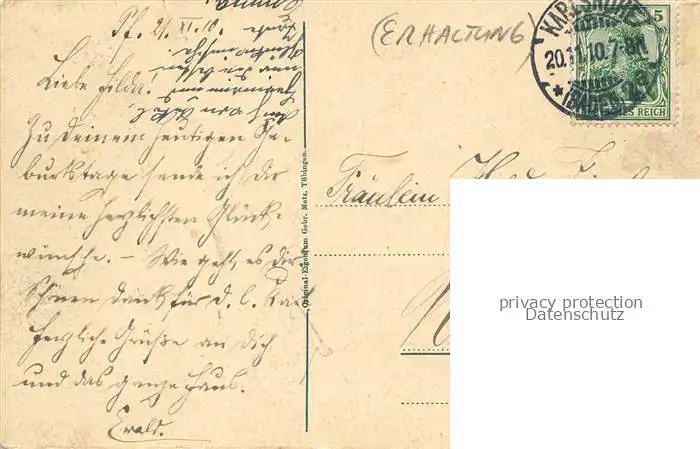 Pf. 21. XI. 10.
Liebe Hilda!
Zu Deinem heutigen Ge-
burtstage sende ich Dir
meine herzlichsten Glück-
wünsche. – Wie geht es Dir
Schönen Dank für d. l. Karte
herzliche Grüße an Dich
und das ganze Haus.
Ewald.
Original-Eigentum Gebr. Metz, Tübingen.
(ERHALTUNG)
KARLSRUHE
20.11.10.7-8N
(BADEN)
5
REICH
Fräulein
privacy protection
Datenschutz